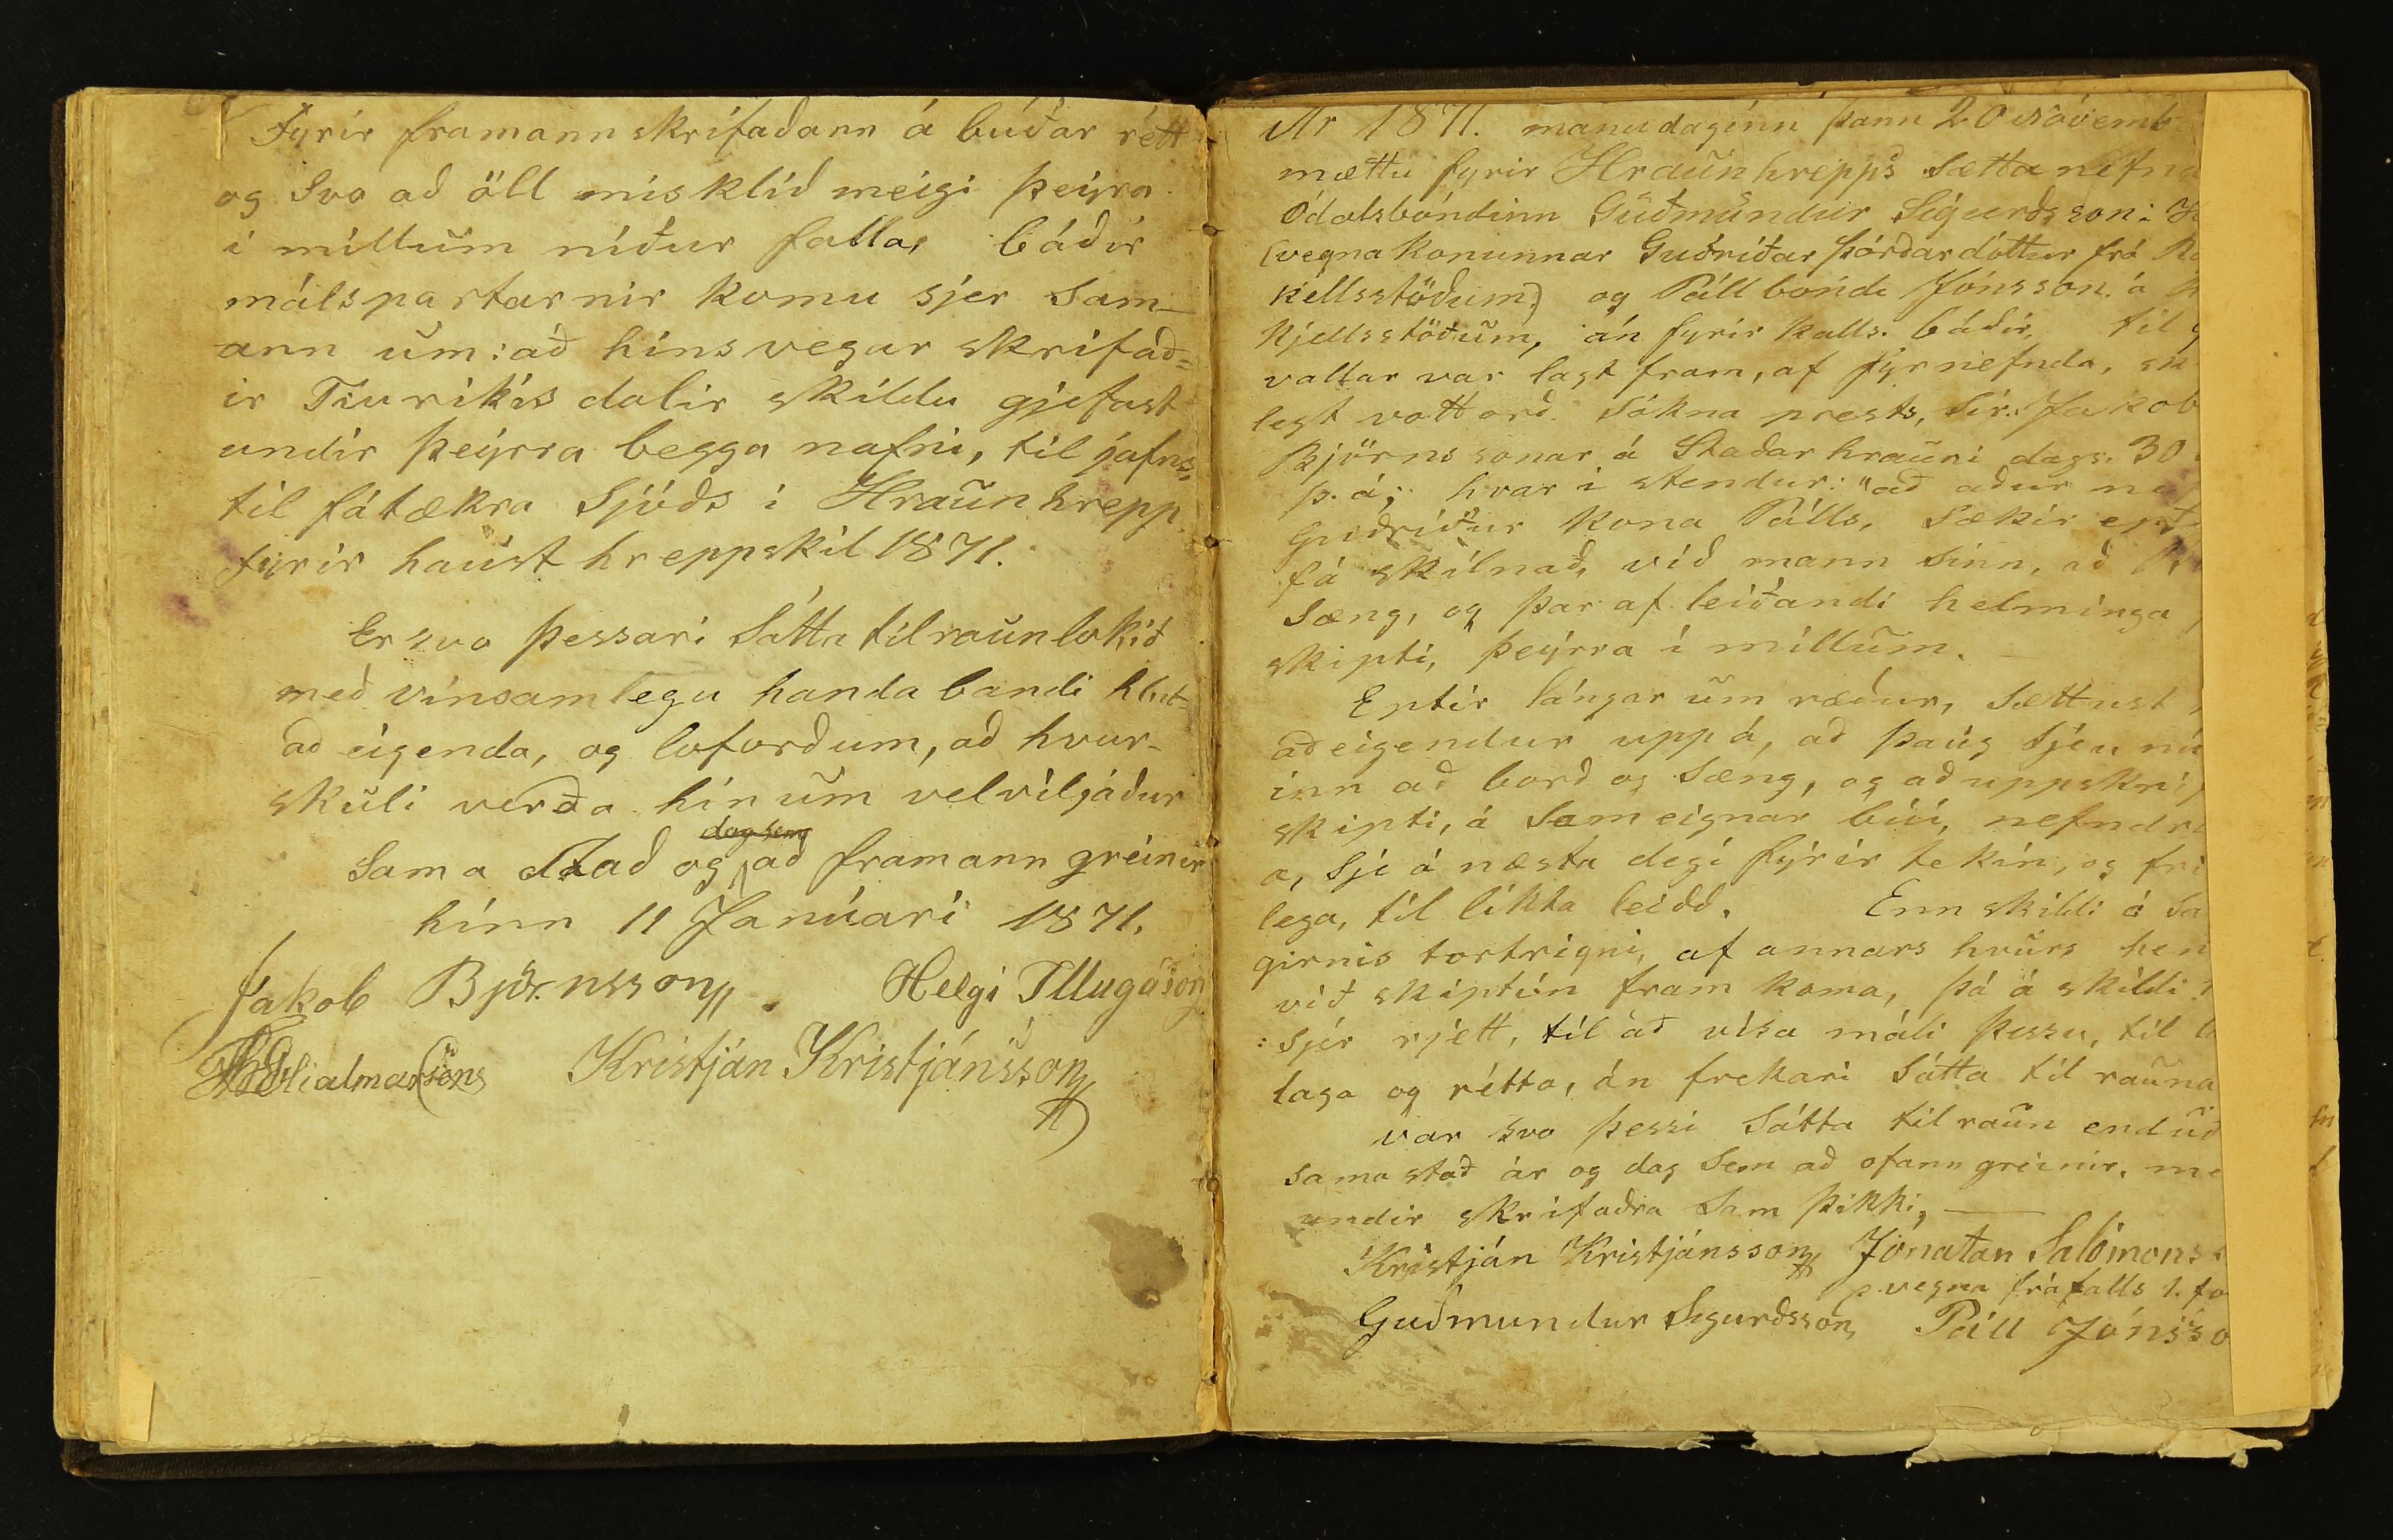 Fyrir framannskrifaðann á búðar rétt
og svo að öll misklíð meigi þeirra
í millũm niður falla, báðir
málspartarnir komu sjer sam-
ann ũm: að hinsvegar skrifað=
ir Tiuríkis dalir skildu gjefast
undir þeýrra beggja nafni, til jafns,
til fátækra Sjóðs i Hraũnhrepp
fyrir haũst hreppskil 1871.
Er svo þessari Sátta tilraũn lokið
með vinsamlegu handabandi hlut-
að eigenda, og loforðum, að hvur-
skũli verða hinũm velviljaður
dag sem
Sama Stað og að framann greinir
hinn 11 Janúari 1871.
Jakob Björnsson. Helgi Illugason
Kristján Kristjánsson
Ár 1871. manudaginn þann 20 Nóvemb
mættu fyrir Hraũnhrepps Sættanefnd
Ódalsbóndinn Gũðmũndur Sigurðsson:
(vegna konunnar Guðríðar Þórðardóttur frá
kellsstöðum) og Páll bóndi Jónsson á
Kjellsstöðũm, án fyrir kalls báðir, til
vallar var lagt fram, af fyrnefnda,
legt vottorð Sókna prests, Sir. Jakob
Björnssonar á Staðarhraũni dags. 30
þ. á; hvar í stendur: "að aður
Guðríður kona Pálls, Sækir ept
fá skilnað, við mann sinn, að
Sæng, og þar af leiðandi helminga
skipti, þeýrra í millũm.
Eptir lángar ũm ræður, Sættust
að eigendur uppá, að þaũg Sjeu nú
inn að borð og Sæng, og að uppskri
skipti, á Sameignar búi, nefndr
a, Sje á næsta degi fýrir tekin, og fri
lega, til likta leidd. Enn skildi á Sa
girnis tortrigni, af annars hvũrs hen
við skiptin fram koma, þá á skildi
sjer rjett, til að vísa máli þessu, til
laga og rétta, án frekari Sátta til raũna
var Svo þessi Sátta tilraũn endũð
Sama stað ár og dag Sem að ofann greinir, me
undir skrifaðra Sam þikki,
Kristján Kristjánsson Jónatan Salómons
vegna fráfalls 1. fo
Guðmundur Sigurðsson, Páll Jónsso